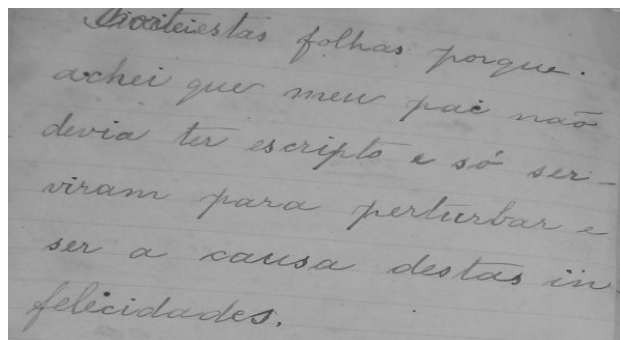 estas folhas porque.
achei que meu pae não
devia ter escripto e só ser-
viram para perturbar e
ser a causa destas in-
felicidades.